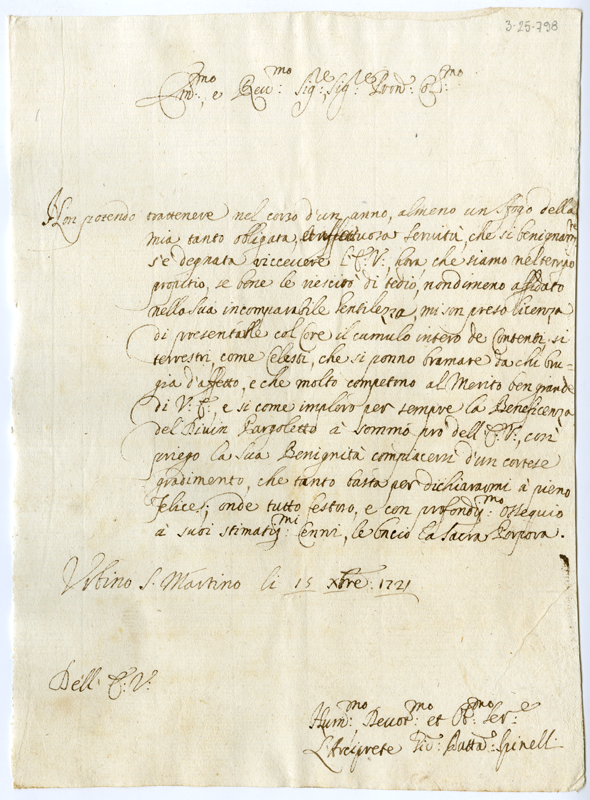 3-25-798
Em:mo, e Rev:mo Sig:re, Sig:re Pron: Col:mo
Non potendo trattenere nel corso d'un anno, almeno un sfogo della
mia tanto obligata, et affettuosa servitù, che si benignam:te
s'è degnata riccevere l'E: V:, hora che siamo nel tempo
propitio, se bene le riescirò di tedio, nondimeno affidato
nella sua incomparabile Gentilezza, mi son preso licenza
di presentarle col Core il cumulo intero de Contenti, si
terrestri, come Celesti, che si ponno bramare da chi bru-
gia d'affetto, e che molto competono al Merito ben grande
di V: E:, e si come imploro per sempre la Beneficenza
del Divin Pargoletto à sommo pro dell'E: V:, così
priego la sua Benignità compiacersi d'un cortese
gradimento, che tanto basta per dichiararmi à pieno
felice; onde tutto festoso, e con profondiss:mo ossequio
à suoi stimatiss:mi Cenni, le bacio la Sacra Porpora.
Urbino S. Martino li 15 Xbre: 1721
Dell'E: V:
Hum:mo Devot:mo et Ob:mo Ser:e
L'Arciprete Gio: Batta: Spinelli